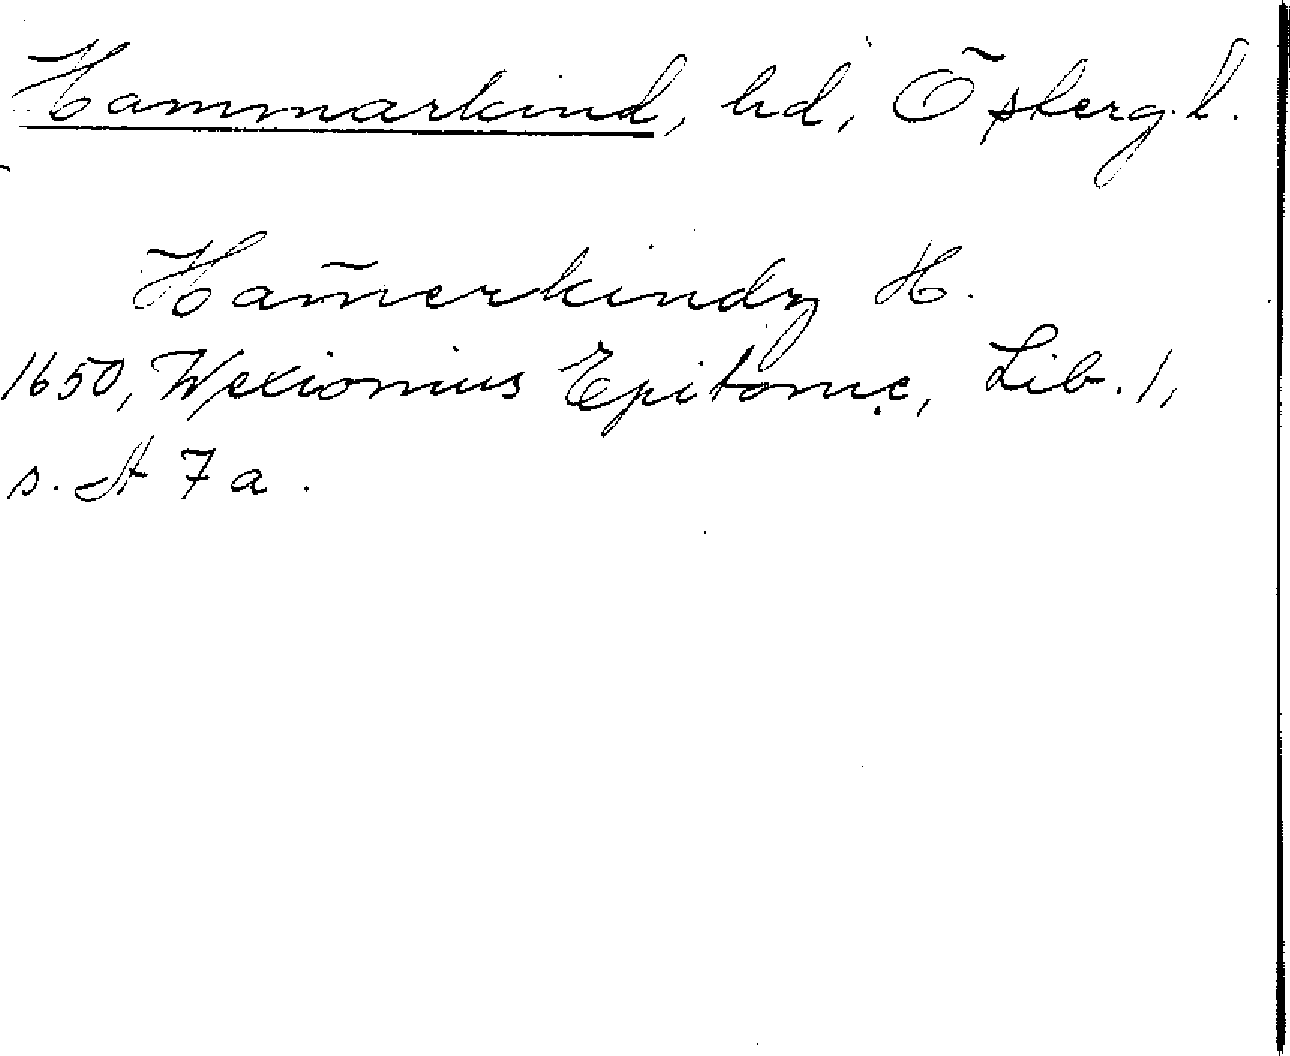 Hammarkind, hd, Östergl.
Ham̄erkindz H.
1650, Wexionius Epitome, Lib. 1,
s. A 7 a.